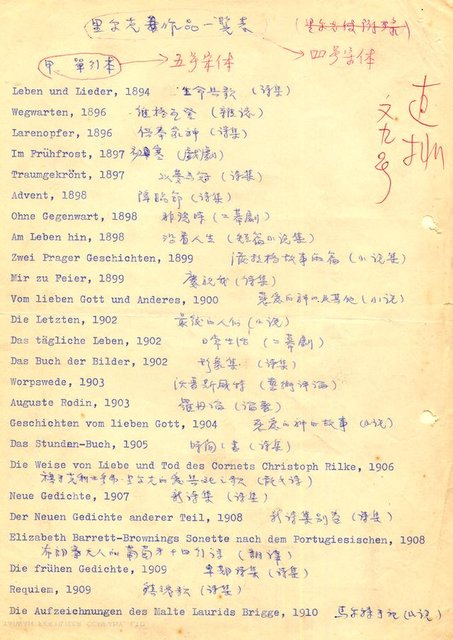 里尔克著作品一览表
四号宋体
甲、單行本
五号宋体
Leben und Lieder, 1894 生命与歌 (诗集)
Wegwarten, 1896
Larenopfer, 1896 (诗集)
Im Frühfrost, 1897 (戲劇)
Traumgekrönt, 1897 以夢为冠 (诗集)
Advent, 1898 降臨節 (诗集)
Ohne Gegenwart, 1898 (二幕劇)
Am Leben hin, 1898 沿着人生 (短篇小说集)
Zwei Prager Geschichten, 1899 布拉格故事兩篇 (小说集)
Mir zu Feier, 1899 慶祝我 (诗集)
Vom lieben Gott und Anderes, 1900 (小说)
Die Letzten, 1902 最後的人们 (小说)
Das tägliche Leben, 1902 日常生活 (二幕劇)
Das Buch der Bilder, 1902 形象集 (诗集)
Worpswede, 1903 (藝術评論)
Auguste Rodin, 1903 羅丹論
Geschichten vom lieben Gott, 1904 故事 (小说)
Das Stundan-Buch, 1905 時间之書 (诗集)
Die Weise von Liebe und Tod des Cornets Christoph Rilke, 1906
Neue Gedichte, 1907 新诗集 (诗集)
Der Neuen Gedichte anderer Teil, 1908 新诗集别卷 (诗集)
Elizabeth Barrett-Brownings Sonette nach dem Portugiesischen, 1908
布朗寧夫人的葡萄牙十四行诗 (翻譯)
Die frühen Gedichte, 1909 早期诗集 (诗集)
Requiem, 1909 鎮魂歌 (诗集)
Die Aufzeichnungen des Malte Laurids Brigge, 1910 馬尔特手记 (小说)